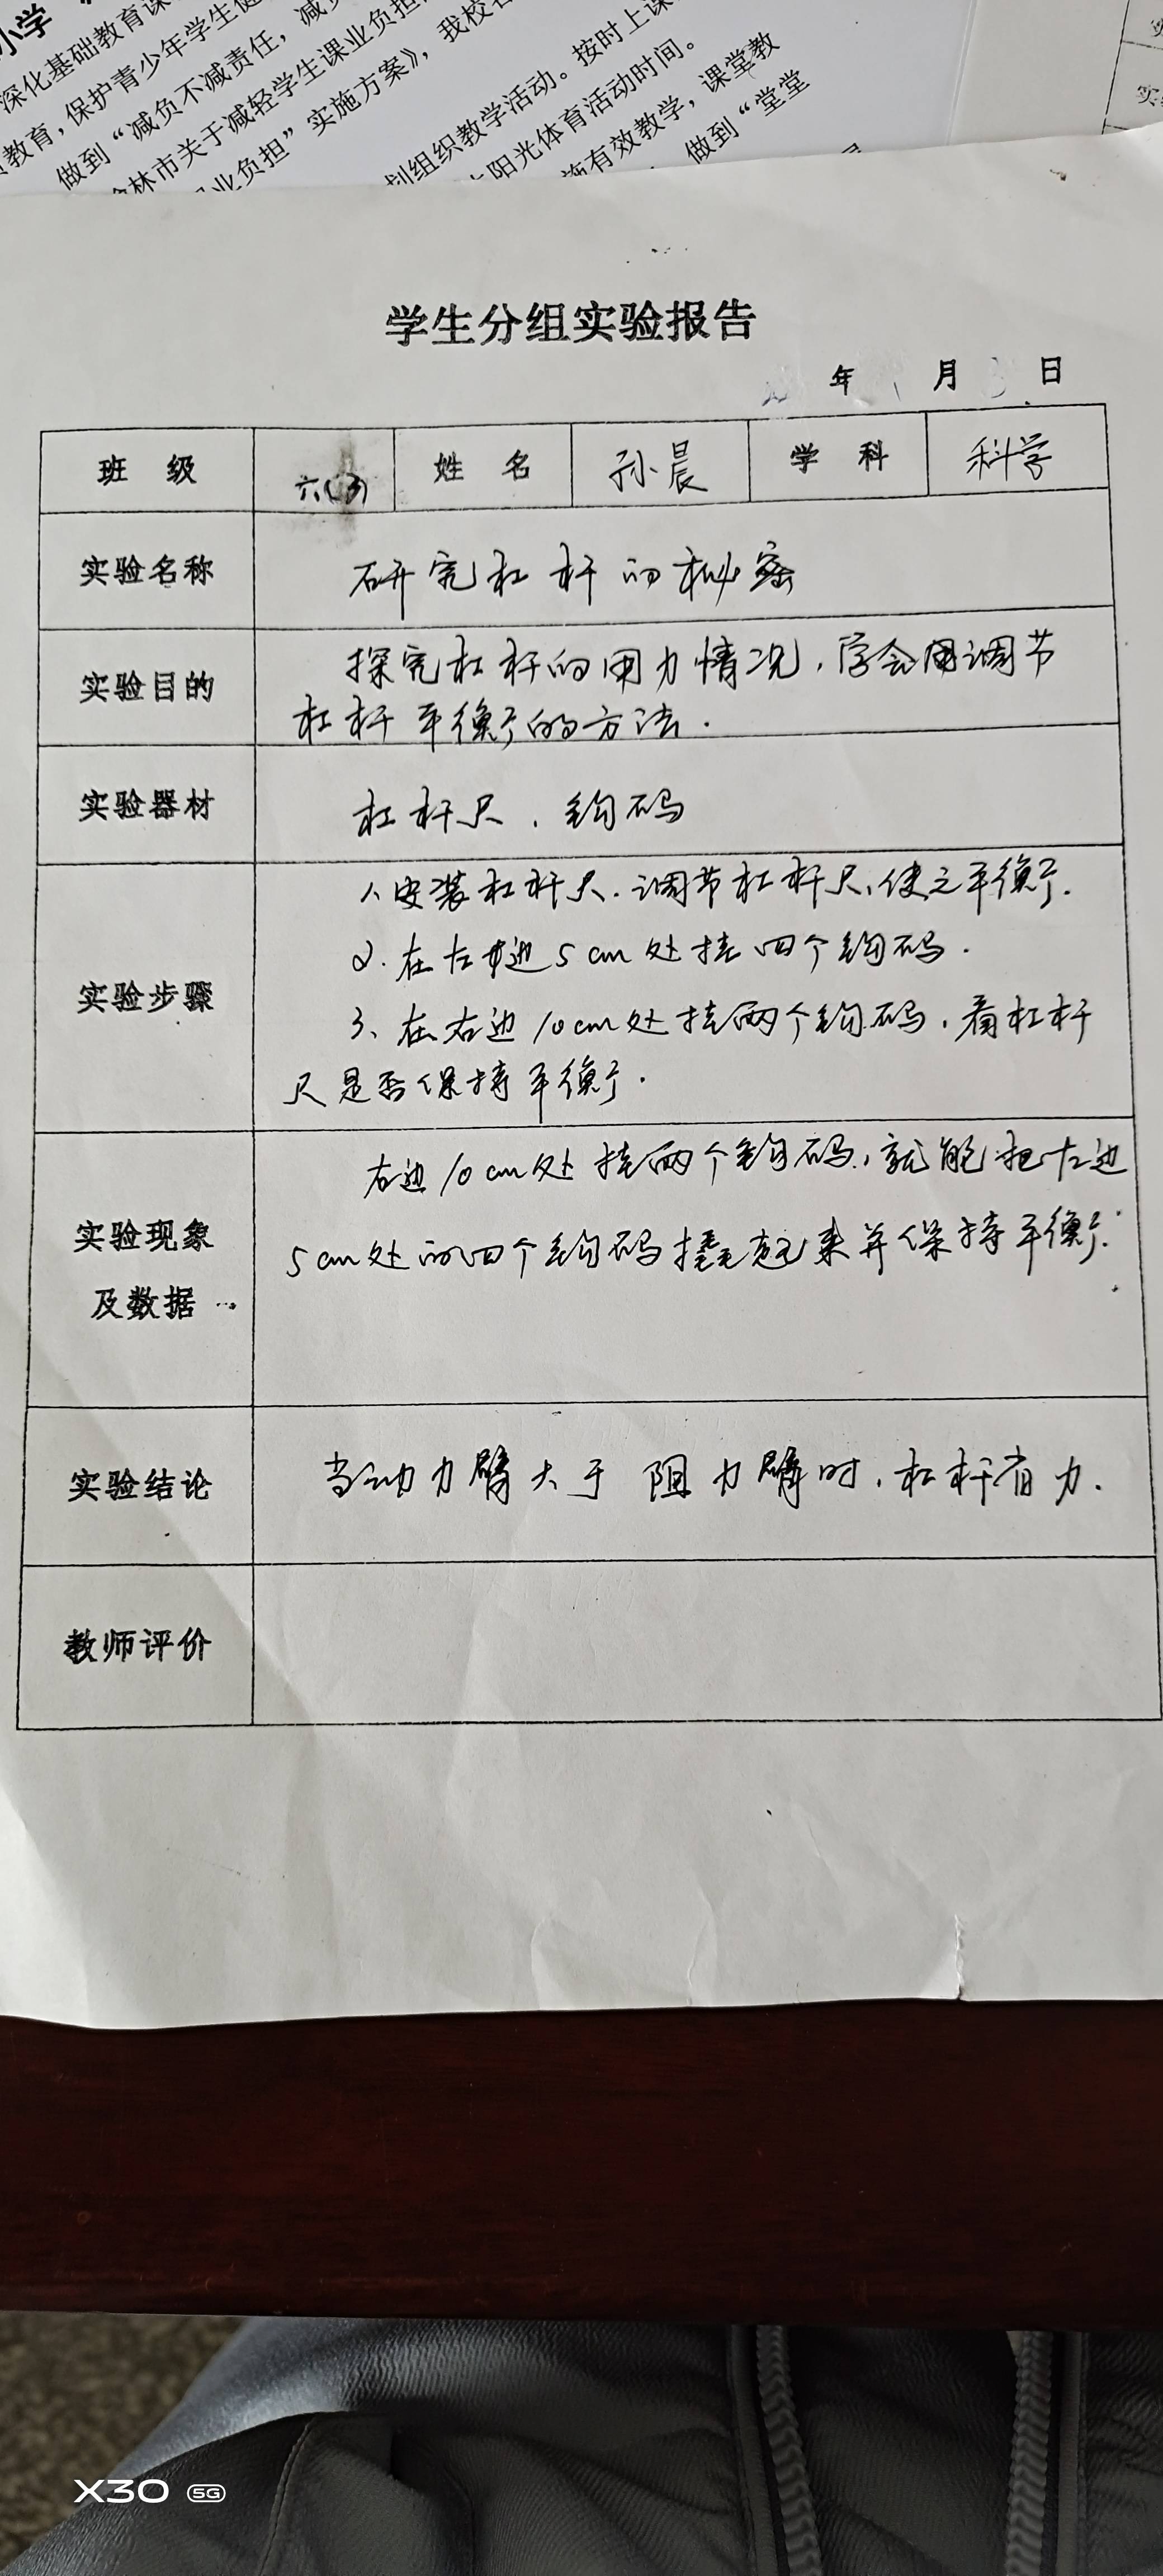 小学
深化基础教育课
教育，保护青少年学生健
做到“减负不减责任，减负
林市关于减轻学生课业负担
业负担”实施方案》，我校
划组织教学活动。按时上课
阳光体育活动时间。
施有效教学，课堂教
做到“堂堂
学生分组实验报告
年 月 日
班 级 六(3) 姓 名 孙晨 学 科 科学
实验名称 研究杠杆的秘密
实验目的 探究杠杆的用力情况，学会用调节
杠杆平衡的方法.
实验器材 杠杆尺、钩码
实验步骤
1、安装杠杆尺.调节杠杆尺,使之平衡.
2.在左边5cm处挂四个钩码.
3、在右边10cm处挂两个钩码,看杠杆
尺是否保持平衡.
实验现象
及数据
右边10cm处挂两个钩码,就能把左边
5cm处的四个钩码撬起来并保持平衡.
实验结论 当动力臂大于阻力臂时,杠杆省力.
教师评价
X30 5G